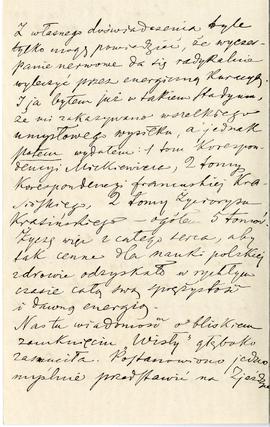 Z własnego doświadczenia tyle
tylko mogę powiedzieć, że wyczer-
panie nerwowe da się radykalnie
wyleczyć przez energiczną kuracyę.
I ja byłem już w takiem stadyum
że mi zakazywano wszelkiego
umysłowego wysiłku, a jednak
potem wydałem 1 tom Korespon-
dencyi Mickiewicza, 2 tomy
Korespondencyi francuskiej Kra-
sińskiego, 2 tomy Życiorysu
Krasińskiego – ogółem 5 tomów.
Życzę więc z całego serca, aby
tak cenne dla nauki polskiej
zdrowie odzyskało w rychłym
czasie całą swą sprężystość
i dawną energię.
Nas tu wiadomość o bliskiem
zamknięciu „Wisły" głęboko
zasmuciła. Postanowiono jedno
myślnie przedstawić na Zjeździe